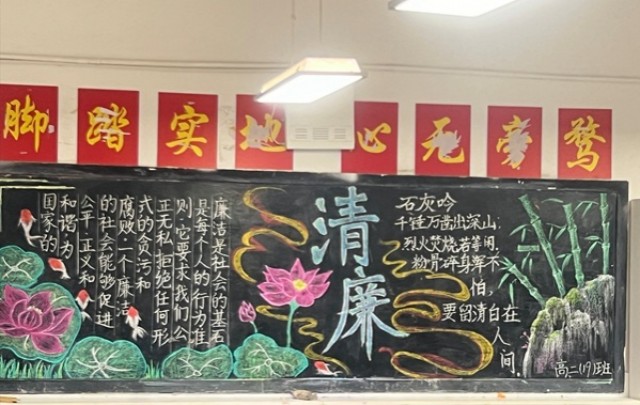 脚踏实地
心无旁骛
清廉
廉洁是社会的基石
是每个人的行为准
则,它要求我们公
正无私,拒绝任何形
式的贪污和
腐败.一个廉洁
的社会能够促进
公平,正义和
和谐为
国家的
石灰吟
千锤万凿出深山,
烈火焚烧若等闲,
粉骨碎身浑不
怕,
要留清白在
人
间.
高二(19)班